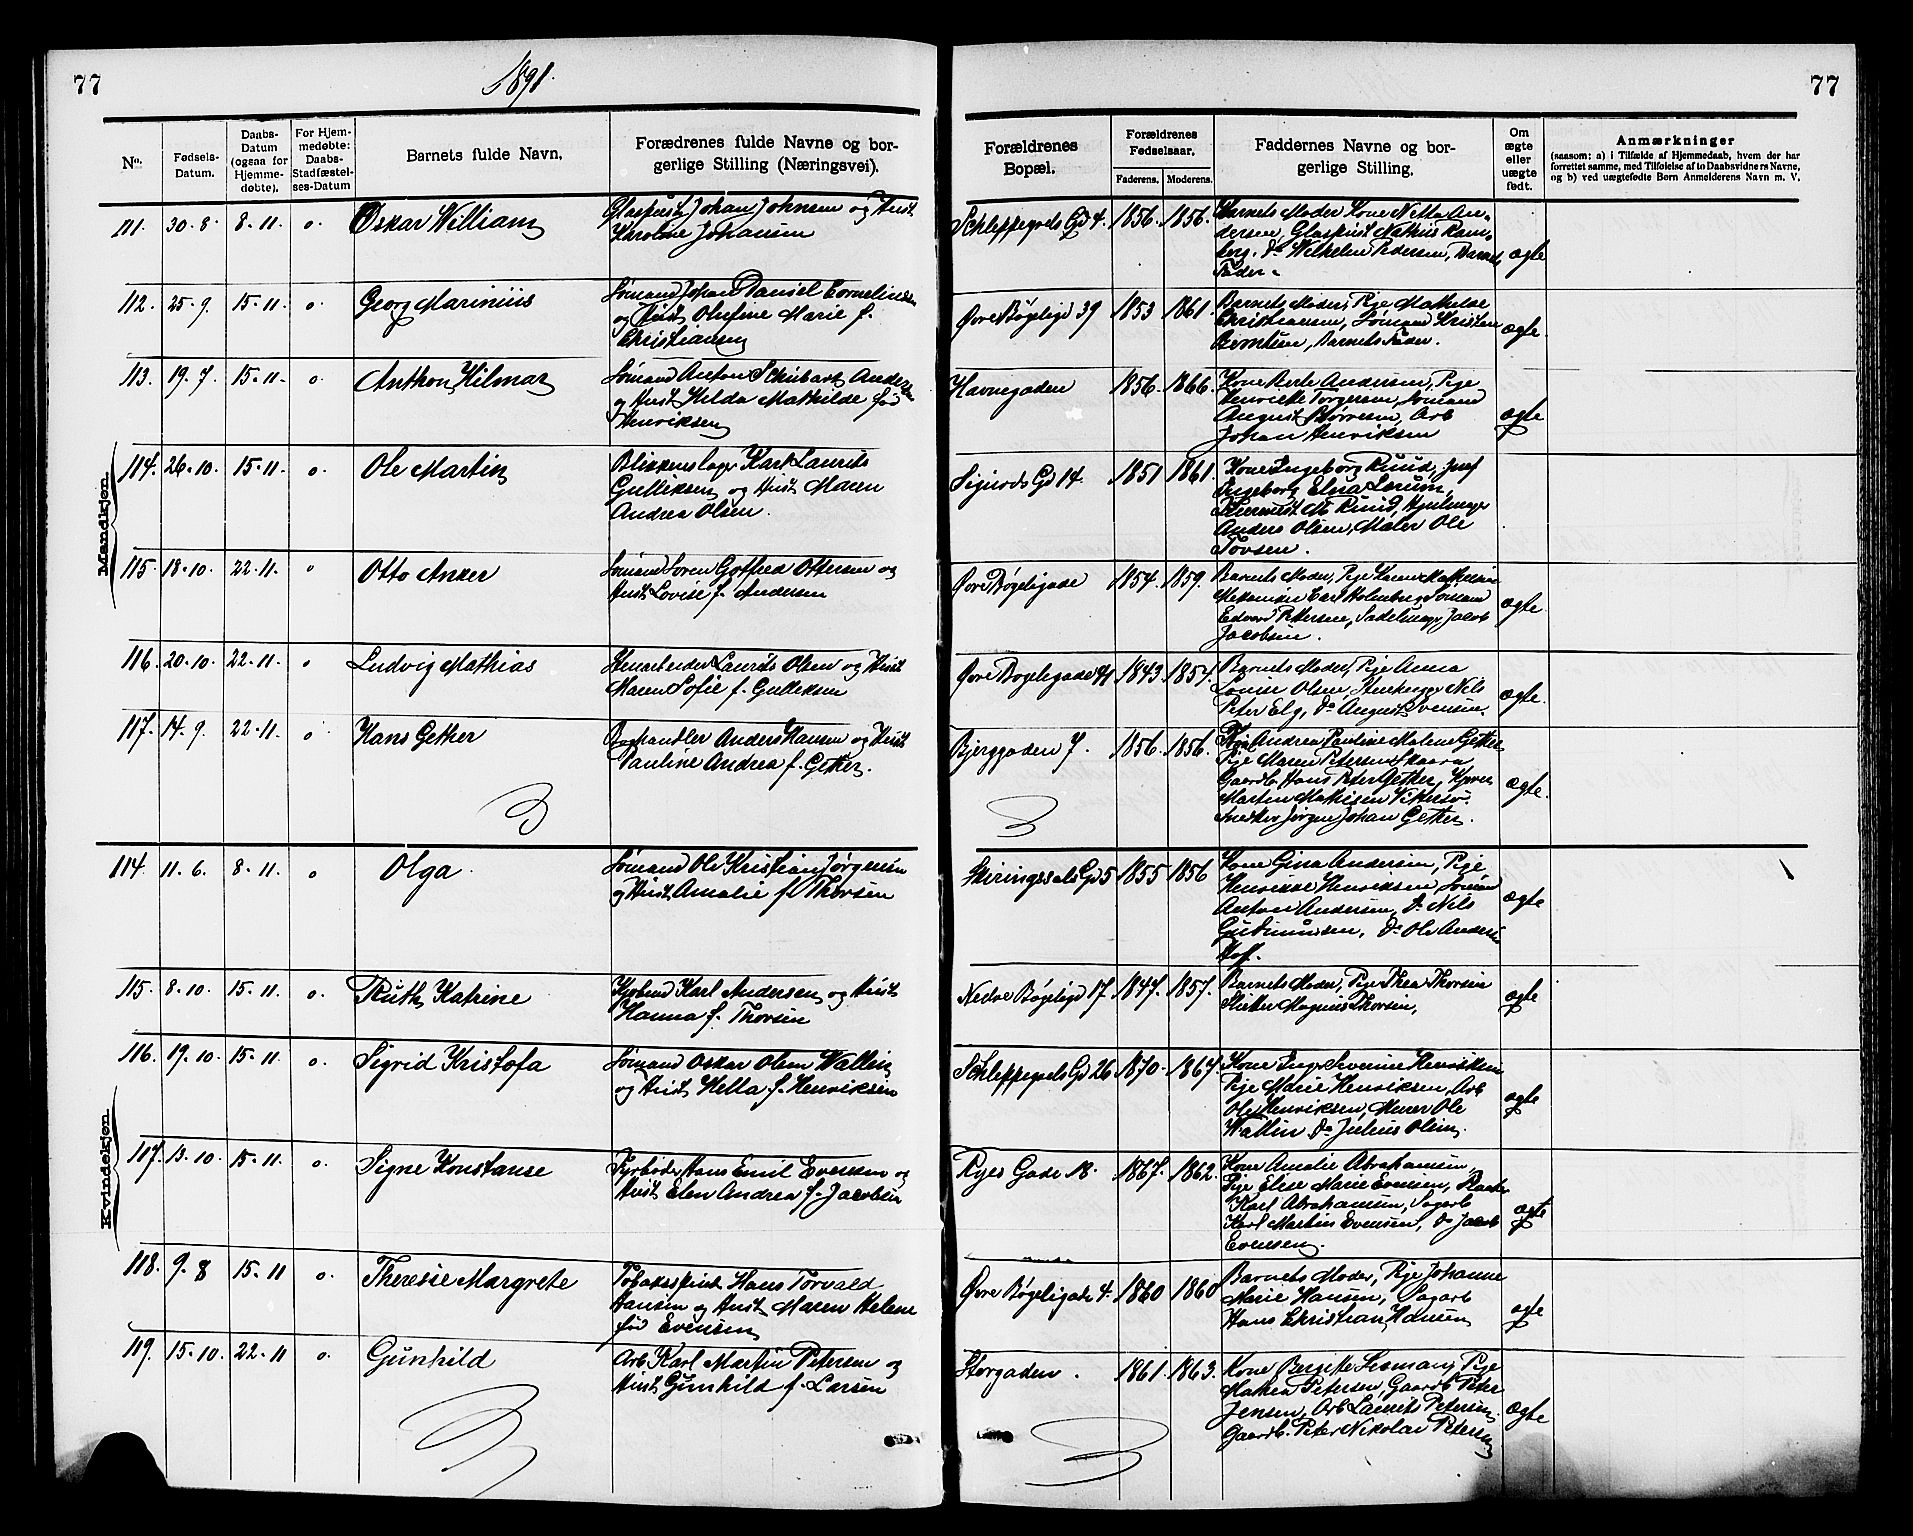 77
1891.
77
No.
Fødsels-
Datum.
Daabs-
Datum
(ogsaa for
Hjemme-
døbte).
For Hjem-
medøbte:
Daabs-
Stadfæstel-
ses-Datum
Barnets fulde Navn.
Forædrenes fulde Navne og bor-
gerlige Stilling (Næringsvei).
Forældrenes
Bopæl.
Forældrenes
Fødselsaar.
Faderens. Moderens.
Faddernes Navne og bor-
gerlige Stilling.
Om
ægte
eller
uægte
født.
Anmærkninger
(saasom: a) i Tilfælde af Hjemmedaab, hvem der har
forrettet samme, med Tilføielse af to Daabsvidners Navne,
og b) ved uægtefødte Børn Anmelderens Navn m. V.
Mandkjøn.
111. 30-8 8-11. o. Oskar William
Glaspust Johan Johnsen og Hust
Karoline Johansen
Schleppegrels Gd 4. 1856. 1856.
Barnets Moder Kone Netta An-
dersen, Glaspust Mathias Ram-
berg, do Wilhelm Pedersen, Barnets
Fader.
ægte
112. 25-9. 15-11. o. Georg Marinius
Sømand Johan Daniel Cornelinsen
og Hust Olufine Marie f.
Christiansen
Øvre Bøgeligd 39 1853 1861.
Barnets Moder, Pige Mathilde
Christiansen, Sømand Kristen
Berntsen, Barnets Fader.
ægte
113. 19-7. 15-11. o. Anthon Hilmar
Sømand Anton Schubart Andersen
og Hust Helda Mathilde fød
Henriksen
Havnegaden 1856. 1866.
Kone Berte Andersen, Pige
Henriette Torgersen, Sømand
August Børresen, Arb
Johan Henriksen
ægte
114. 26-10. 15-11. o. Ole Martin
Blikkenslager Karl Laurits
Gulliksen og Hust Maren
Andrea Olsen.
Sigurds Gd 14. 1851 1861.
Kone Ingeborg Ruud, Jmf
Ingeborg Elisa Lerum,
M Ruud, Hjulmager
Anders Olsen, Maler Ole
Tovsen.
115. 18-10. 22-11. o Otto Anker
Sømand Soren Gothfred Ottersen og
Hust Lovise f. Andersen
Øvre Bøgeligade 1854. 1859.
Barnets Moder, Pige Karen Mathisen
Mekaniker Carl Holmberg, Sømand
Edvard Pettersen, Sadelmager Jacob
Jacobsen.
ægte.
116. 20-10. 22-11. o Ludvig Mathias
Stenarbeider Laurits Olsen og Hust
Maren Sofie f. Gulliksen
Øvre Bøgeligade 41 1843. 1854.
Barnets Moder, Pige Anna
Louise Olsen, Stenhugger Nils
Peter Elg, do August Svensen.
ægte.
117. 14-9. 22-11. o Hans Gether
Boghandler Anders Hansen og Hust
Pauline Andrea f. Gether.
Bjerggaden 7. 1856. 1856.
Pige Andrea Pauline Malene Gether
Pige Maren Petersen Skaara
Gaardb Hans Peter Gether, Kjører
Martin Mathisen Vittersø.
Snedker Jørgen Johan Gether.
ægte.
Kvindekjøn.
114. 11-6. 8-11. o Olga.
Sømand Ole Kristian Jørgensen
og Hust Amalie f. Thorsen
Skiringssals Gd 5 1855 1856
Kone Gina Andersen, Pige
Henrikke Henriksen, Sømand
Anton Andersen, do Nils
Gudmunsen, do Ole Andersen
Hoff.
ægte
115. 8-10. 15-11. o. Ruth Katrine
Fyrbøder Karl Andersen og Hust
Hanna f. Thorsen
Nedre Bøgeligd 17 1847. 1857.
Barnets Moder, Pige Thea Thorsen
Magnus Thorsen,
ægte
116. 19-10. 15-11. o. Sigrid Kristofa
Sømand Oskar Olsen Wallin
og Hust Hella f. Henriksen
Schleppegrels Gd 26 1870. 1864.
Kone Inger Severine Henriksen
Pige Marie Henriksen, Arb
Ole Henriksen, Murer Ole
Wallin do Julius Olsen.
ægte
117. 13-10. 15-11. o. Signe Konstanse
Fyrbøder Hans Emil Evensen og
Hust Elen Andrea f. Jacobsen
Ryes Gade 18. 1867. 1862.
Kone Amalie Abrahamsen,
Pige Elise Marie Evensen,
Karl Abrahamsen, Sagarb
Karl Martin Evensen, do Jacob
Evensen.
ægte
118. 9-8 15-11 o. Theresie Margrete
Tobaksspind. Hans Torvald
Hansen og Hust Maren Helene
fød Evensen
Øvre Bøgeligade 4. 1860 1860
Barnets Moder, Pige Johanne
Marie Hansen, Sagarb
Hans Christian Hansen
ægte
119. 15-10. 22-11 o. Gunhild
Arb Karl Martin Petersen og
Hust Gunhild f. Larsen
Storgaden. 1861. 1863.
Kone Bergitte Semann, Pige
Mathea Petersen, Gaardb Peter
Jensen, Arb Laurits Petersen
Gaardb. Peter Nikolai Petersen
ægte